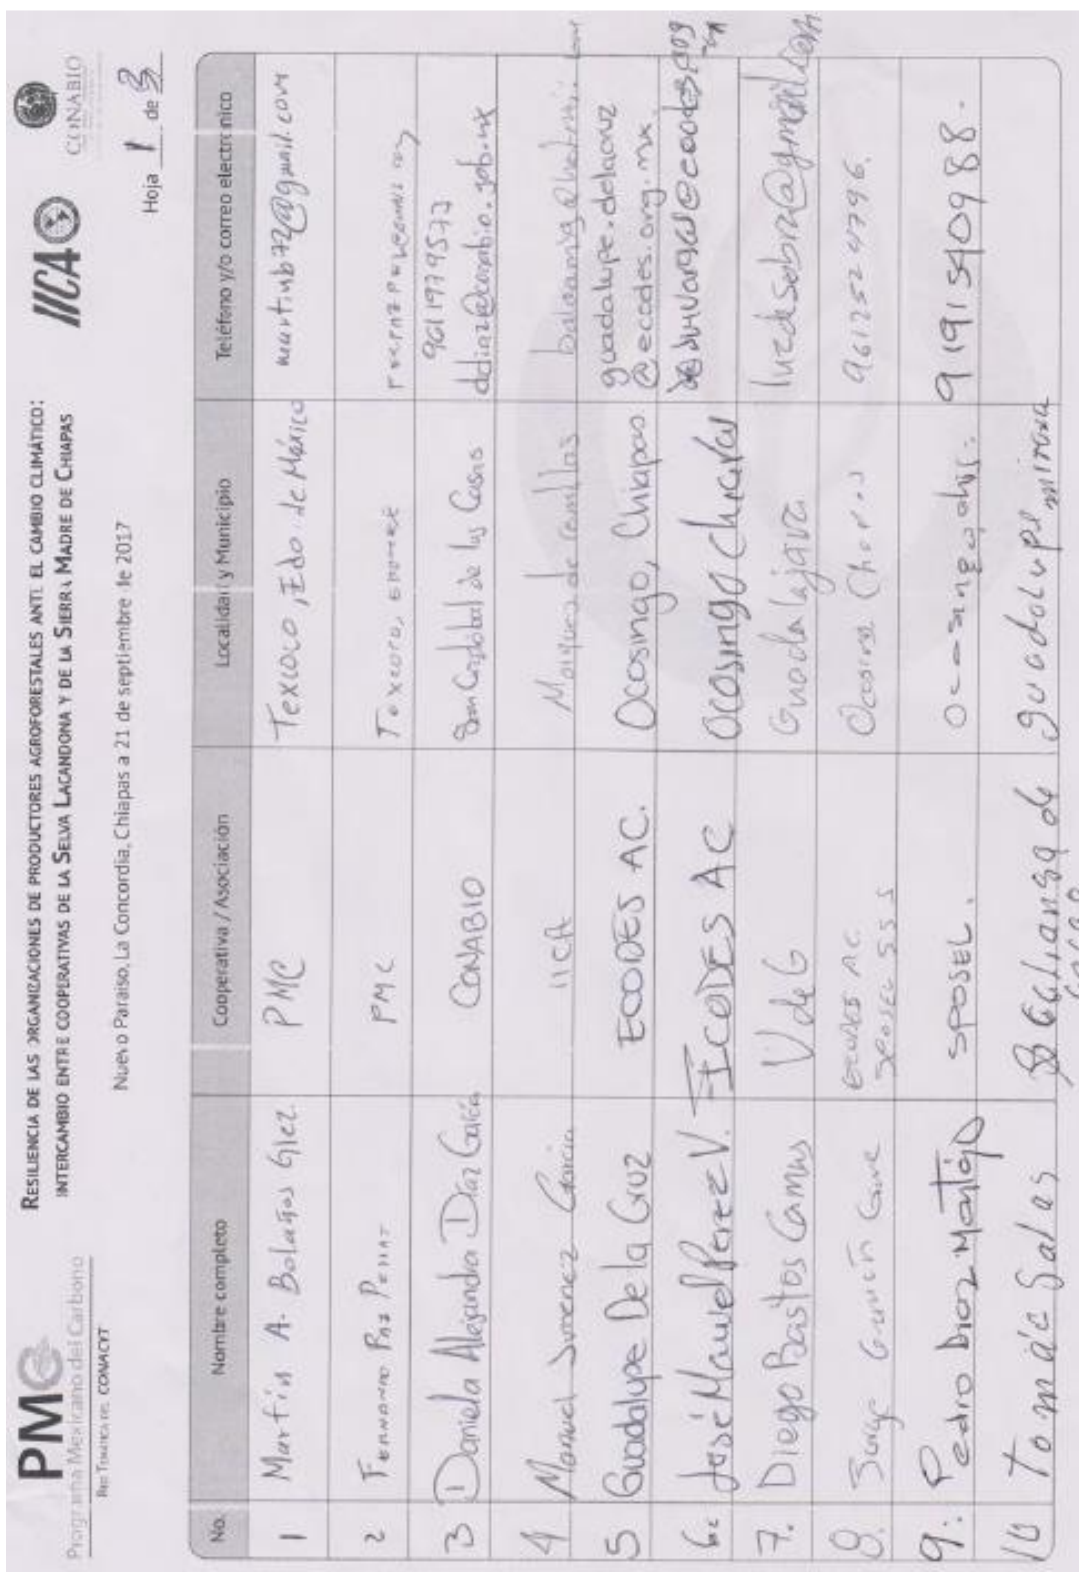 PMC
Programa Mexicano del Carbono
RED TEMÁTICA DEL CONACYT
RESILIENCIA DE LAS ORGANIZACIONES DE PRODUCTORES AGROFORESTALES ANTE EL CAMBIO CLIMÁTICO:
INTERCAMBIO ENTRE COOPERATIVAS DE LA SELVA LACANDONA Y DE LA SIERRA MADRE DE CHIAPAS
IICA
CONABIO
Nuevo Paraiso, La Concordia, Chiapas a 21 de septiembre de 2017
Hoja 1 de 3
No. Nombre completo Cooperativa / Asociación Localidad y Municipio Teléfono y/o correo electrónico
1 Martín A. Bolaños Glez. PMC Texcoco, Edo de México martinb72@gmail.com
2 Fernando Paz PMC Texcoco,
3 Daniela Alejandra Díaz García CONABIO San Cristobal de las Casas 9611979577
ddiaz@conabio.gob.mx
4 Manuel Jimenez García IICA
5 Guadalupe De la Cruz ECODES AC. Ocosingo, Chiapas guadalupe.delacruz
@ecodes.org.mx
6. José Manuel Perez V. ECODES AC Ocosingo
7. Diego Bastos Camus U de G Guadalajara luzdesobra@gmail.com
8. ECODES AC. Ocosingo 9612524796
SPOSEL SSS
9. Pedro Diaz Montejo SPOSEL. Ocosingo, chis. 9191540988.
10 Tomác Salas de guadolupe